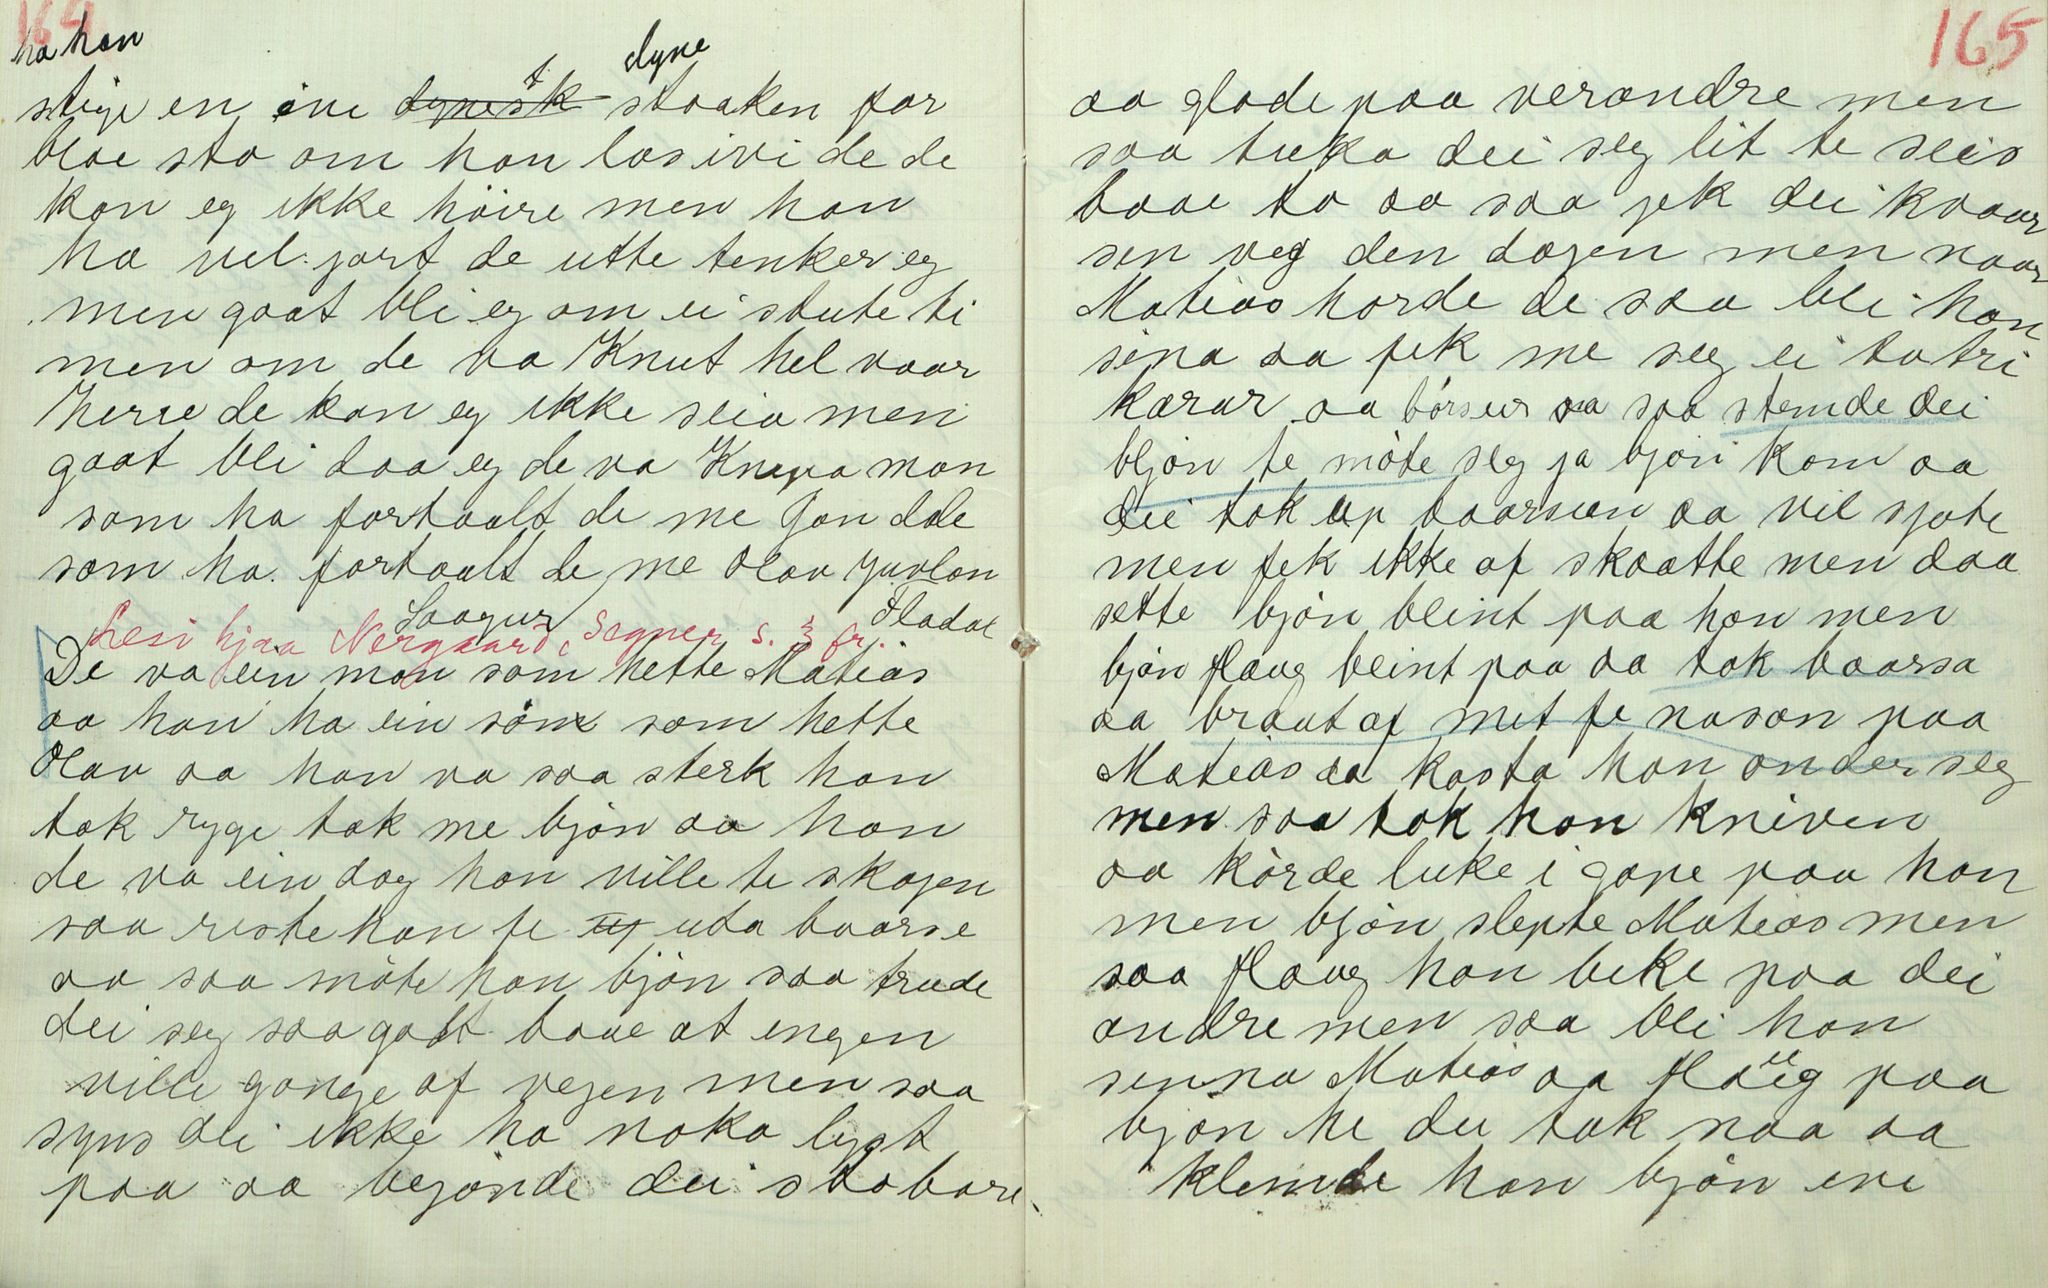 164
ha han dyne
stige en ive dynestk stokken for
bloe sto om han las ivi de de
kan eg ikke höire men han
ha vel jort de utte tenker eg
men gaat bli eg om ei stute ti
men om de va Knut hel vaar
herre de kan eg ikke seia men
gaat bli daa eg de va Knupa man
som ha fortaalt de me Jon dale
som ha fortaalt de me Olav Juvlan
Saagur Fladal
Lesi hjaa Nergaard, Segner s. 3 fr.
De va ein man som hette Matias
aa han ha ein sön som hette
Olav aa han va saa sterk han
tok ryge tak me bjön aa han
de va ein dag han ville te skogen
saa reiste han fe uta baarse
aa saa möte han bjön saa trude
dei seg saa godt baae at engen
ville gange af vegen men saa
syns dei ikke ha noka lyst
paa aa begönde dei sto bare
165
aa glode paa verandre men
saa tuka dei seg lit te seis
baae to aa saa jek dei kvaar
sen veg den dagen men naar
Matias horde de saa bli han
sina aa fek me seg ei to tri
karar aa börsur aa saa stemde dei
bjön te möte seg ja bjön kom aa
dei tok up baarsen aa vil sjote
men fek ikke af skaatte men daa
sette bjön blint paa han men
bjön flaug blint paa aa tok baarsa
aa braut af mit fe nason paa
Matias aa kasta han onder seg
men saa tok han kniven
aa körde luke i gape paa han
men bjön slepte Matias men
saa flaug han beke paa dei
andre men saa bli han
senna Matias aa flaug paa
bjön he du tak naa aa
klemde han bjön eve